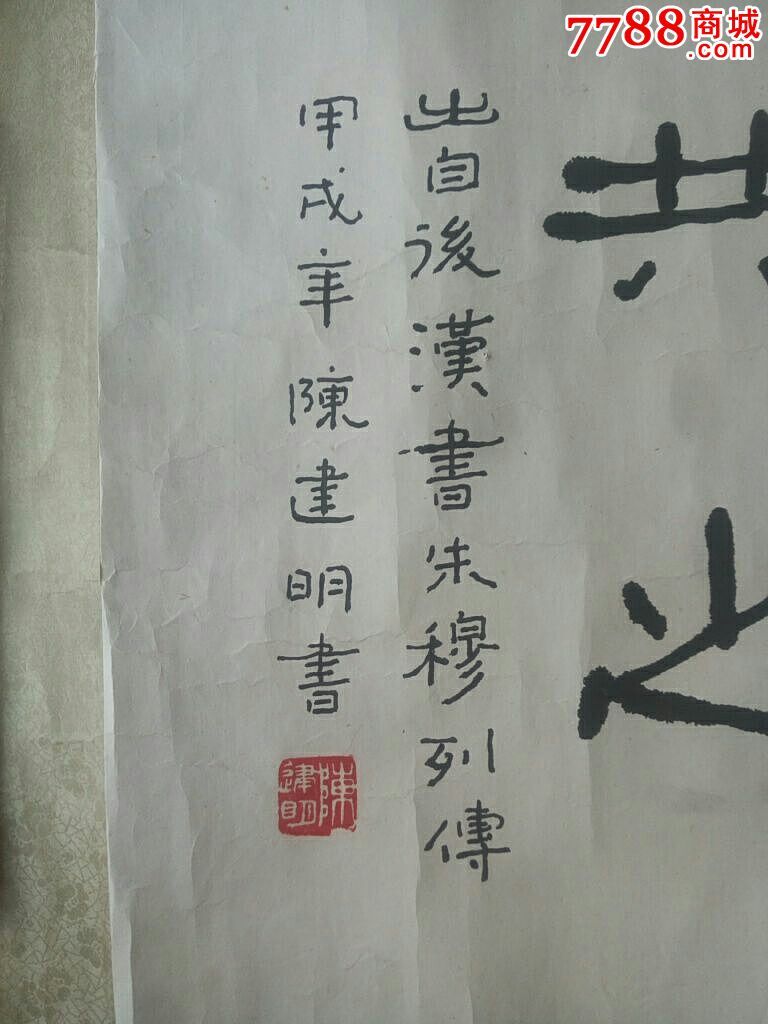 7788商城
.com
共
之
出自後漢書朱穆列傳
甲戌年陳建明書
陳建明